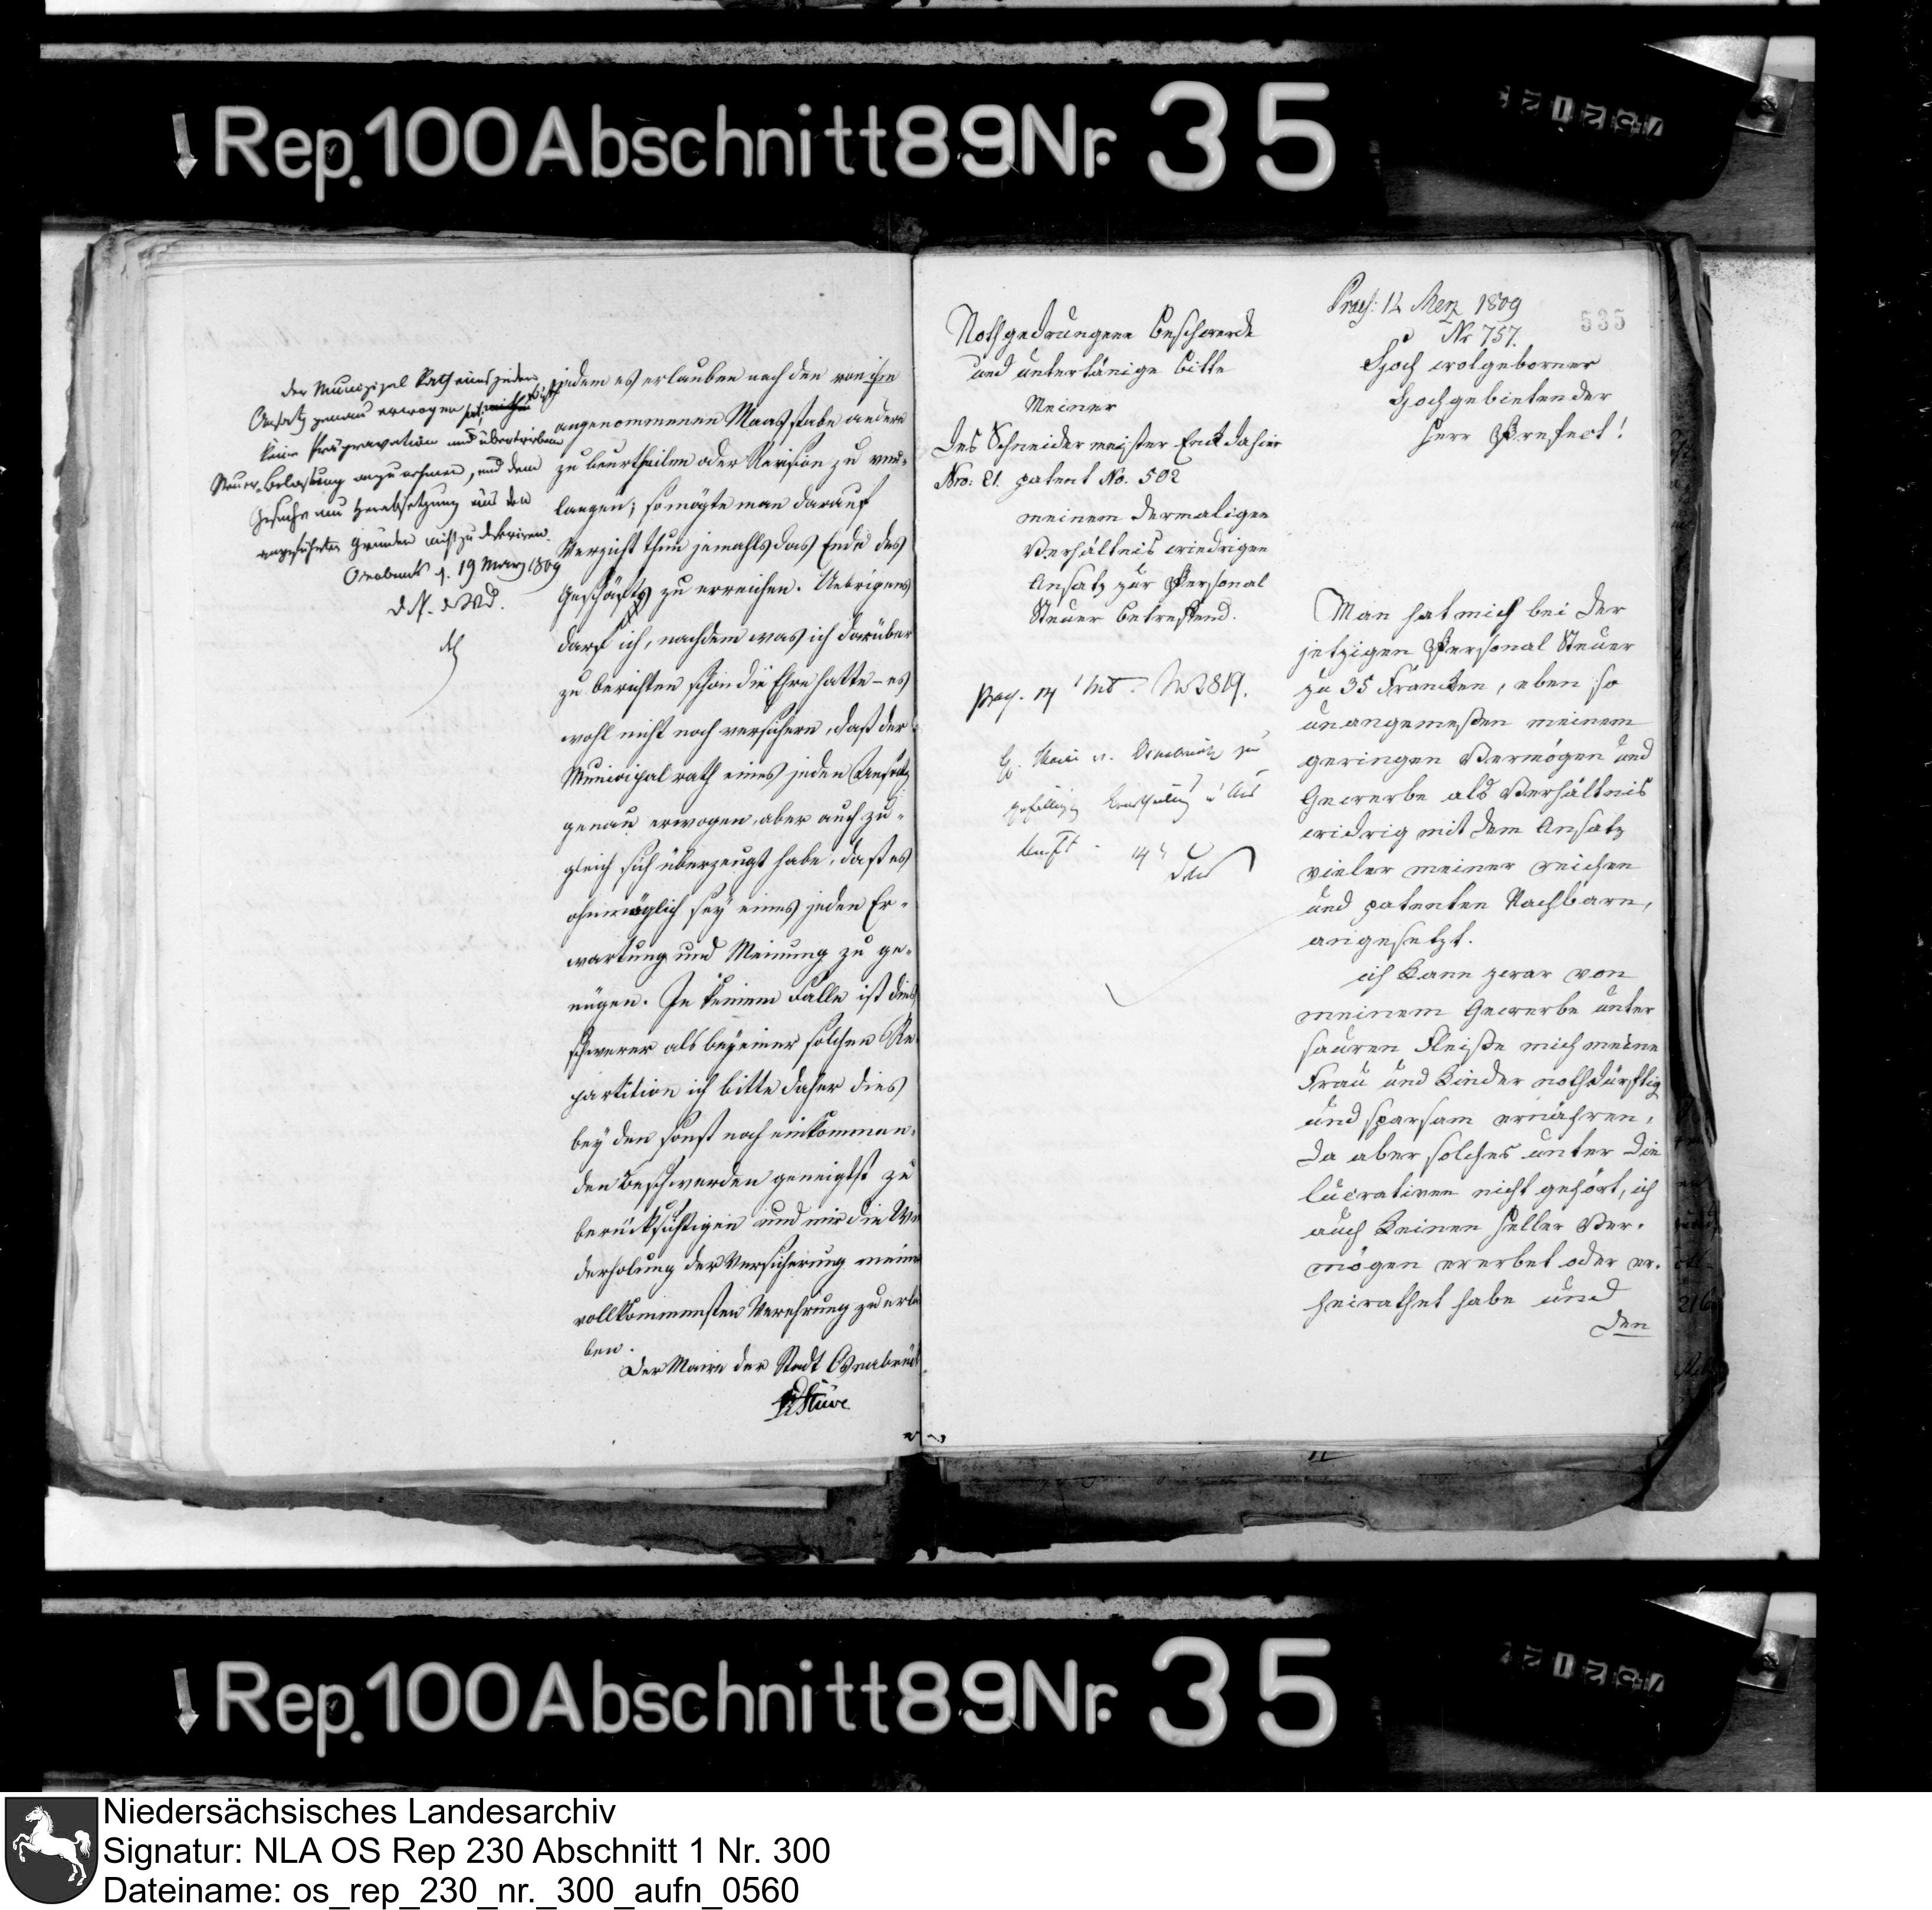 Rep. 100 Abschnitt 89 Nr. 35
der Municipal Rath eines jeden
Ansatz genau erwogen
keine Prägravation und übertriebene
Steuer-Belastung anzunehmen, und dem
Gesuche um Herabsetzung aus den
angeführten Gründen nicht zu deferiren.
Osnabrück d. 19 März 1809
jedem es erlauben nach den von ihm
angenommenen Maasstabe andere
zu beurtheilen oder Revision zu ver-
langen; so mögte man darauf
Verzicht thun jemahls das Ende des
Geschäfts zu erreichen. Uebrigens
darf ich, nachdem was ich darüber
zu berichten schon die Ehre hatte - es
wohl nicht noch versichern, daß der
Municipalrath eines jeden Ansatz
genau erwogen, aber auch zu-
gleich sich überzeugt habe, daß es
ohnmöglich sey eines jeden Er-
wartung und Meinung zu ge-
nügen. In keinem Falle ist dies
schwerer als bey einer solchen Re
partition ich bitte daher dies
bey den sonst noch einkommen-
den Beschwerden geneigtst zu
berücksichtigen und mir die Wie
derholung der Versicherung meiner
vollkommensten Verehrung zu erlau
ben.
Der Maire der Stadt Osnabrück
Stüve
Nothgedrungene Beschwerde
und untertänige Bitte
Meiner
Des Schneidermeister Enck dahier
Nro: 21. patent No. 502
meinem dermaligen
Verhältnis wiedrigen
Ansatz zur Personal
Steuer betreffend.
No 2819.
H. Maire v. Osnabrück zu
gefälligen
Praes: 12 Merz 1809
Nr 757.
535
Hoch wolgeborner
Hochgebietender
Herr Prefect!
Man hat mich bei der
jetzigen Personal Steuer
zu 35 Francken, eben so
unangemeßen meinem
geringen Vermögen und
Gewerbe als Verhältnis
widrig mit dem Ansatz
vieler meiner reichen
und patenten Nachbarn,
angesetzt.
ich kann zwar von
meinem Gewerbe unter
sauren Fleiße mich meine
Frau und Kinder nothdürftig
und sparsam ernähren,
da aber solches unter die
lucrativen nicht gehört, ich
auch keinen Heller Ver-
mögen ererbet oder er-
heirathet habe und
den
Rep. 100 Abschnitt 89 Nr. 35
Niedersächsisches Landesarchiv
Signatur: NLA OS Rep 230 Abschnitt 1 Nr. 300
Dateiname: os_rep_230_nr._300_aufn_0560